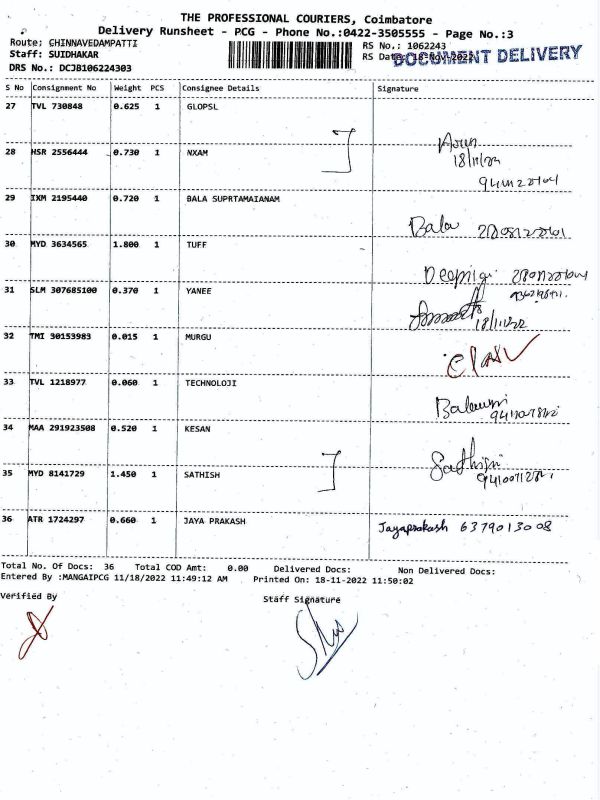 THE PROFESSIONAL COURIERS, Coimbatore
Delivery Runsheet - PCG - Phone No.:0422-3505555 - Page No.:3
Route: CHINNAVEDAMPATTI
Staff: SUIDHAKAR
DRS No.: DCJB106224303
RS No.: 1062243
RS Date: 18-Nov-2022
DOCUMENT DELIVERY
S No Consignment No Weight PCS Consignee Details Signature
27 TVL 730848 0.625 1 GLOPSL
28 HSR 2556444 0.730 1 NXAM
Arun
18/11/22
29 IXM 2195440 0.720 1 BALA SUPRTAMAIANAM
Bala
30 MYD 3634565 1.800 1 TUFF
31 SLM 307685100 0.370 1 YANEE
18/11/22
32 TMI 30153983 0.015 1 MURGU
33 TVL 1218977 0.060 1 TECHNOLOJI
34 MAA 291923508 0.520 1 KESAN
35 MYD 8141729 1.450 1 SATHISH
36 ATR 1724297 0.660 1 JAYA PRAKASH Jayaprakash 6379013008
Total No. Of Docs: 36 Total COD Amt: 0.00 Delivered Docs: Non Delivered Docs:
Entered By :MANGAIPCG 11/18/2022 11:49:12 AM Printed On: 18-11-2022 11:50:02
Verified By Staff Signature